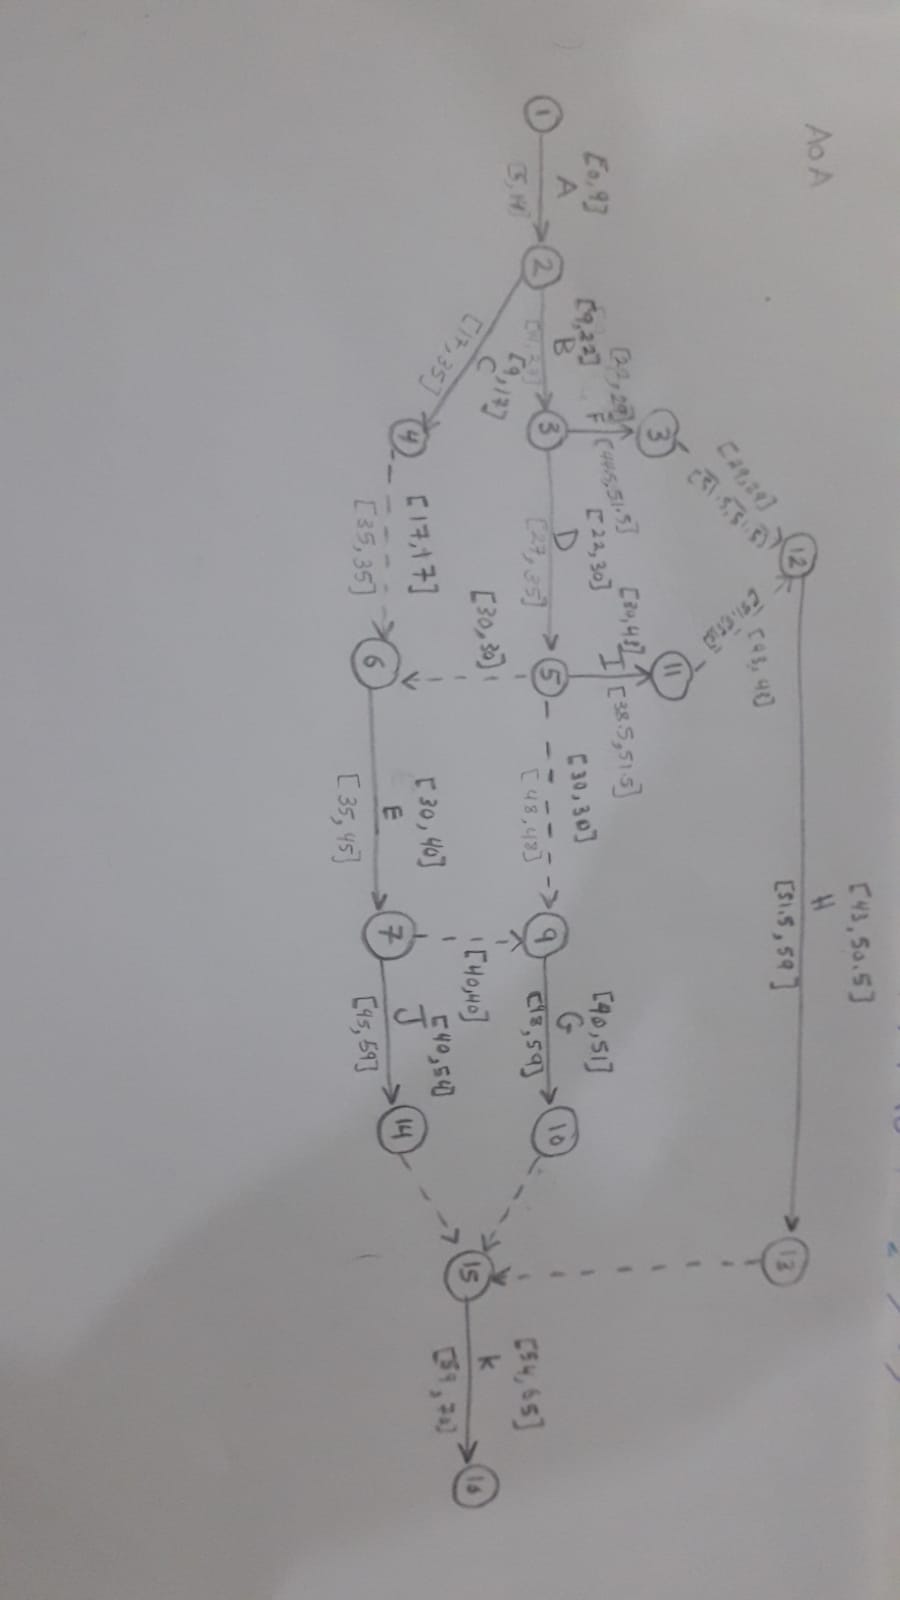 AoA
[43,50.5]
H
[51.5,59]
12
13
[29,29]
[51.5,51.5]
[43,43]
3
11
[22,29]
F
[44.5,51.5]
[30,43]
I
[38.5,51.5]
[0,9]
A
[5,14]
[9,22]
B
[22,30]
D
[27,35]
[30,30]
[48,48]
[40,51]
G
[48,59]
1
2
3
5
9
10
[9,17]
C
[17,35]
[30,30]
[40,40]
[54,65]
K
[59,70]
15
16
4
[17,17]
[35,35]
6
[30,40]
E
[35,45]
7
[40,54]
J
[45,59]
14